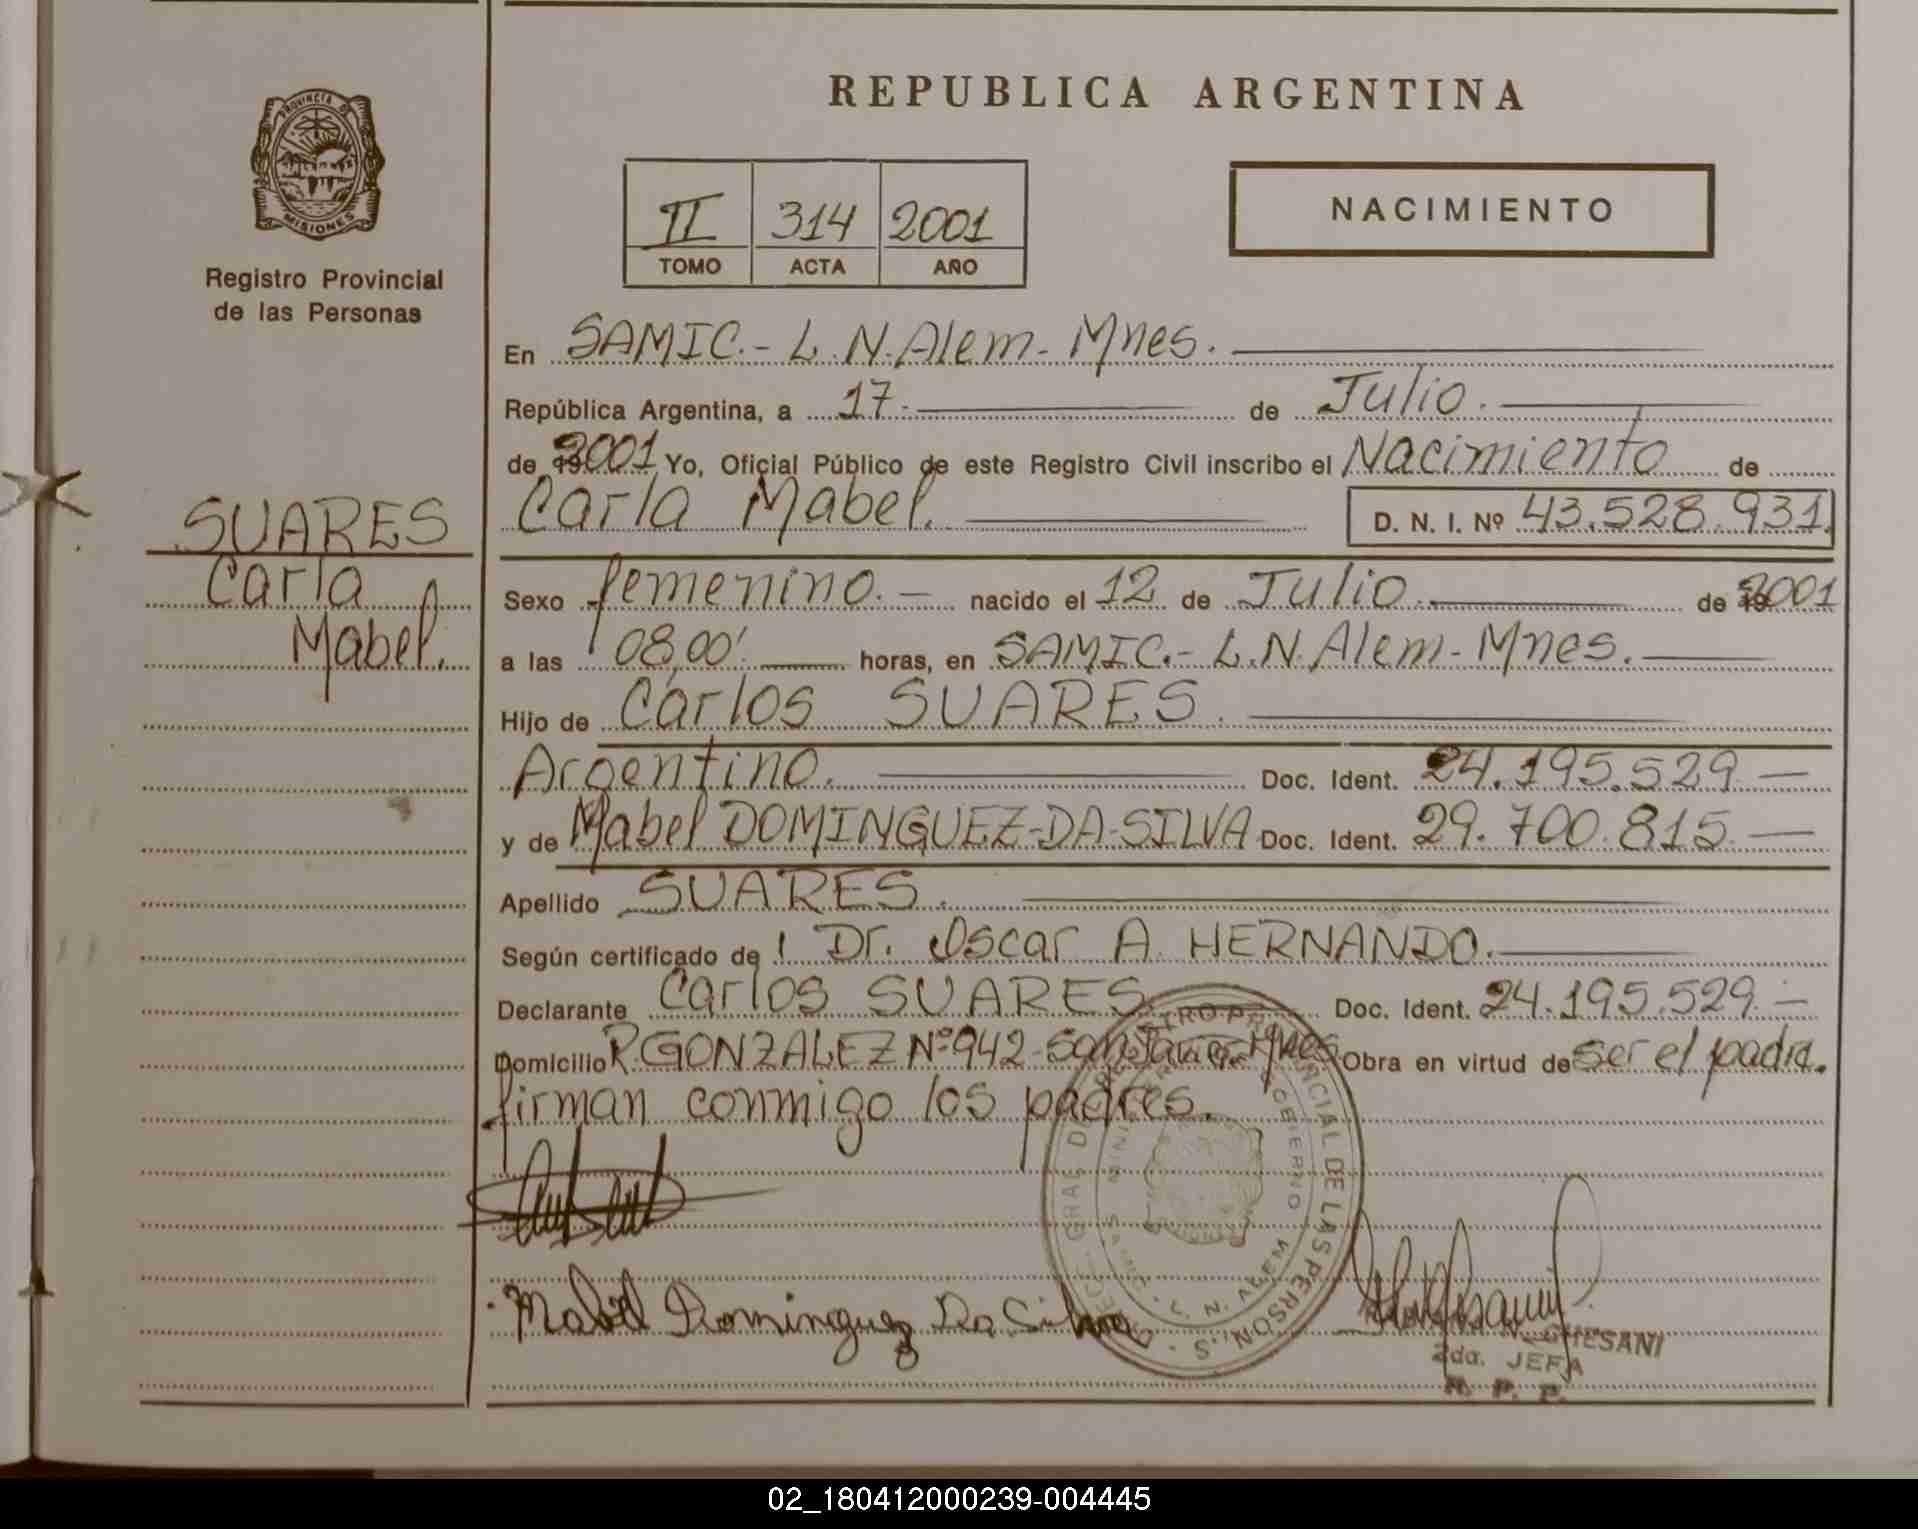 PROVINCIA DE
MISIONES
Registro Provincial
de las Personas
SUARES
Carla
Mabel.
REPUBLICA ARGENTINA
II 314 2001
TOMO ACTA AÑO
NACIMIENTO
En SAMIC.- L.N.Alem- Mnes.
República Argentina, a 17- de Julio.
de 2001 Yo, Oficial Público de este Registro Civil inscribo el Nacimiento de
Carla Mabel. D. N. I. Nº 43.528.931.
Sexo femenino.- nacido el 12 de Julio de 2001
a las 08,00'. horas, en SAMIC.- L.N.Alem- Mnes.
Hijo de Carlos SUARES.
Argentino. Doc. Ident. 24.195.529-
y de Mabel DOMINGUEZ-DA-SILVA Doc. Ident. 29.700.815-
Apellido SUARES.
Según certificado de Dr. Oscar A. HERNANDO.
Declarante Carlos SUARES Doc. Ident. 24.195.529.-
Domicilio R.GONZALEZ Nº 942- Mnes Obra en virtud de ser el padre.
firman conmigo los padres.
Mabel Dominguez Da Silva
L. N. ALEM
GOBIERNO
2da. JEFA
R. P. P.
02_180412000239-004445